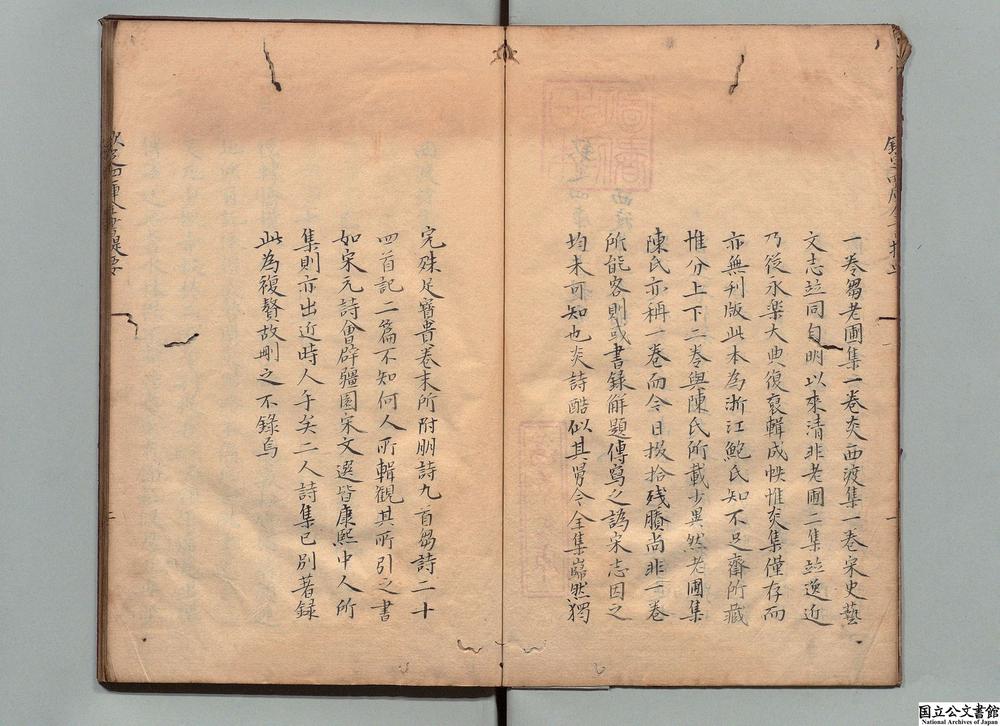 一卷芻老圃集一卷炎西渡集一卷宋史藝
文志竝同自明以來清非老圃二集竝逸近
乃從永樂大典復裒輯成帙惟炎集僅存而
亦無刊版此本為浙江鮑氏知不足齋所藏
惟分上下二卷與陳氏所載少異然老圃集
陳氏亦稱一卷而今日掇拾殘賸尚非一卷
所能容則或書録解題傳寫之譌宋志因之
均未可知也炎詩酷似其舅今全集巋然獨
完殊足寶貴卷末所附朋詩九首芻詩二十
四首記二篇不知何人所輯観其所引之書
如宋元詩會辟疆園宋文選皆康熙中人所
集則亦出近時人手矣二人詩集已別著録
此為複贅故刪之不錄焉
欽定四庫全書提要
国立公文書館
National Archives of Japan